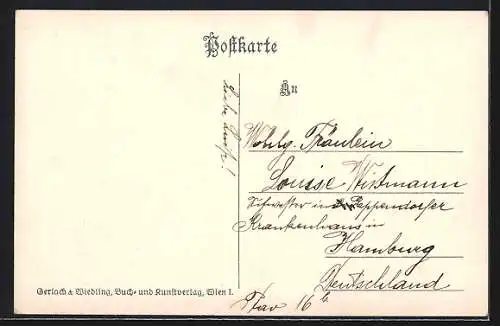 Postkarte
An
Wohlg. Fräulein
Louise Wistmann
in Eppendorfer
Krankenhaus in
Hamburg
Deutschland
Gerlach & Wiedling, Buch- und Kunstverlag, Wien I.